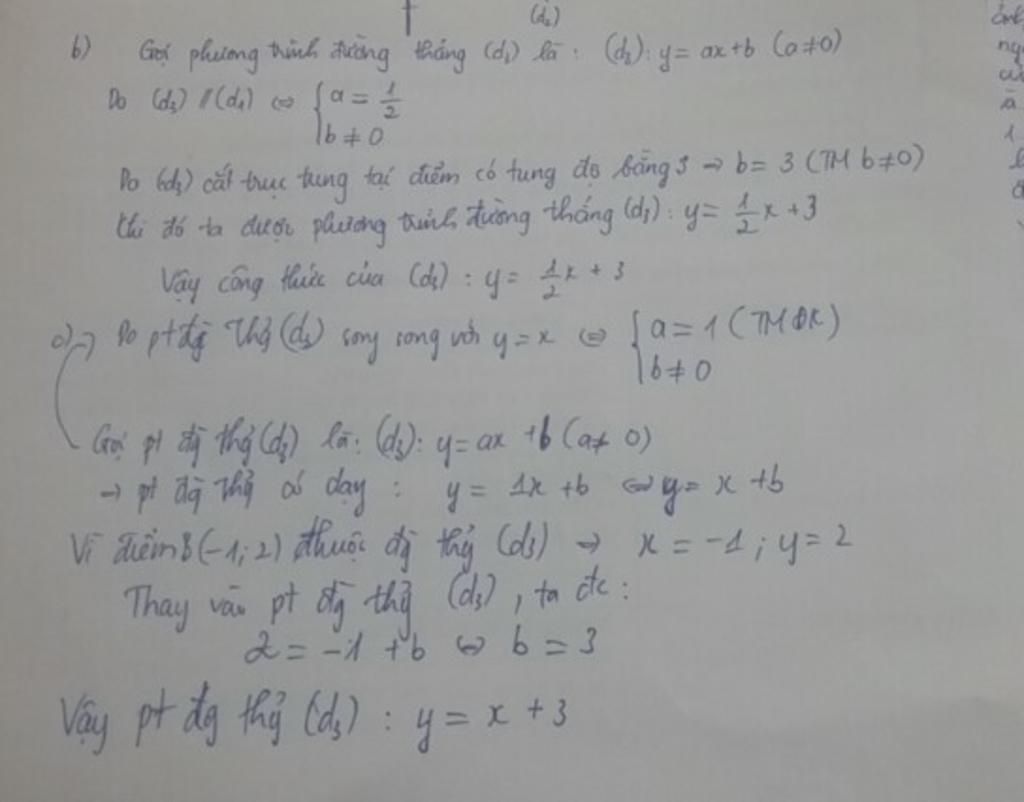 (d₂)
b) Gọi phương trình đường thẳng (d₃) là: (d₃): y = ax + b (a ≠ 0)
Do (d₃) // (d₁) ⇔ { a = 1/2
b ≠ 0
Do (d₃) cắt trục tung tại điểm có tung độ bằng 3 → b = 3 (TM b ≠ 0)
Khi đó ta được phương trình đường thẳng (d₃): y = 1/2 x + 3
Vậy công thức của (d₃) : y = 1/2 x + 3
c) → Do pt đg thg (d₃) song song với y = x ⇔ { a = 1 (TMĐK)
b ≠ 0
Gọi pt đg thg (d₃) là: (d₃): y = ax + b (a ≠ 0)
→ pt đg thg có dạng : y = 1x + b ⇔ y = x + b
Vì điểm B (-1; 2) thuộc đg thg (d₃) → x = -1 ; y = 2
Thay vào pt đg thg (d₃), ta đc :
2 = -1 + b ⇔ b = 3
Vậy pt đg thg (d₃) : y = x + 3